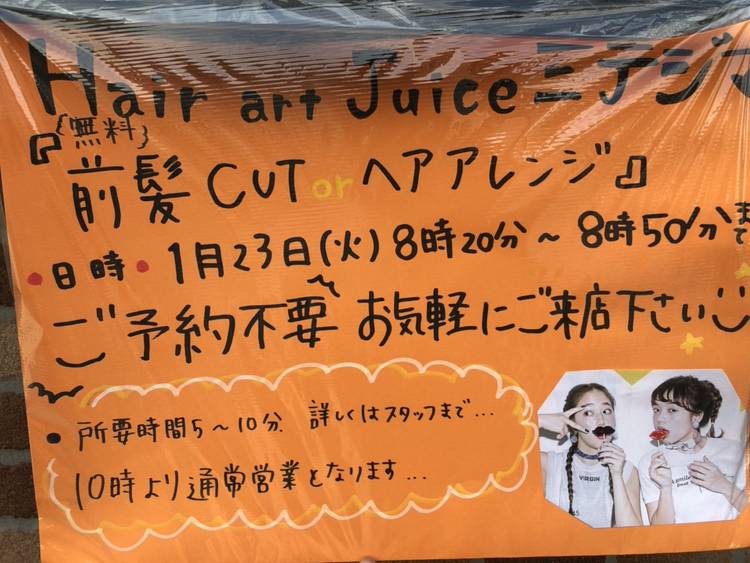 Hair art Juice ミテジマ
{無料}
『前髪CUT or ヘアアレンジ』
• 日時 • 1月23日(火) 8時20分～8時50分まで
ご予約不要 お気軽にご来店下さい
• 所要時間5～10分 詳しくはスタッフまで...
10時より通常営業となります...
VIRGIN